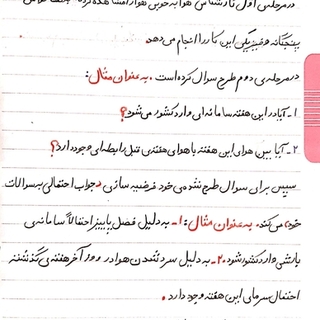 در مرحله‌ی اول کارشناس هوا به خوبی هوا را مشاهده کرده
پنجگانه و فیزیکی این کار را انجام می‌دهد.
در مرحله‌ی دوم طرح سوال کرده است. به عنوان مثال:
۱- آیا در این هفته سامانه‌ای وارد کشور می‌شود؟
۲- آیا بین هوای این هفته با هوای هفته‌ی قبل رابطه‌ای وجود دارد؟
سپس برای سوال طرح شده‌ی خود فرضیه سازی و جواب احتمالی به سوالات
خود می‌کند. به عنوان مثال: ۱- به دلیل فصل پاییز احتمالاً سامانه‌ی
بارشی وارد کشور شود. ۲- به دلیل سرد شدن هوا در روز آخر هفته‌ی گذشته
احتمال سرمای این هفته وجود دارد.